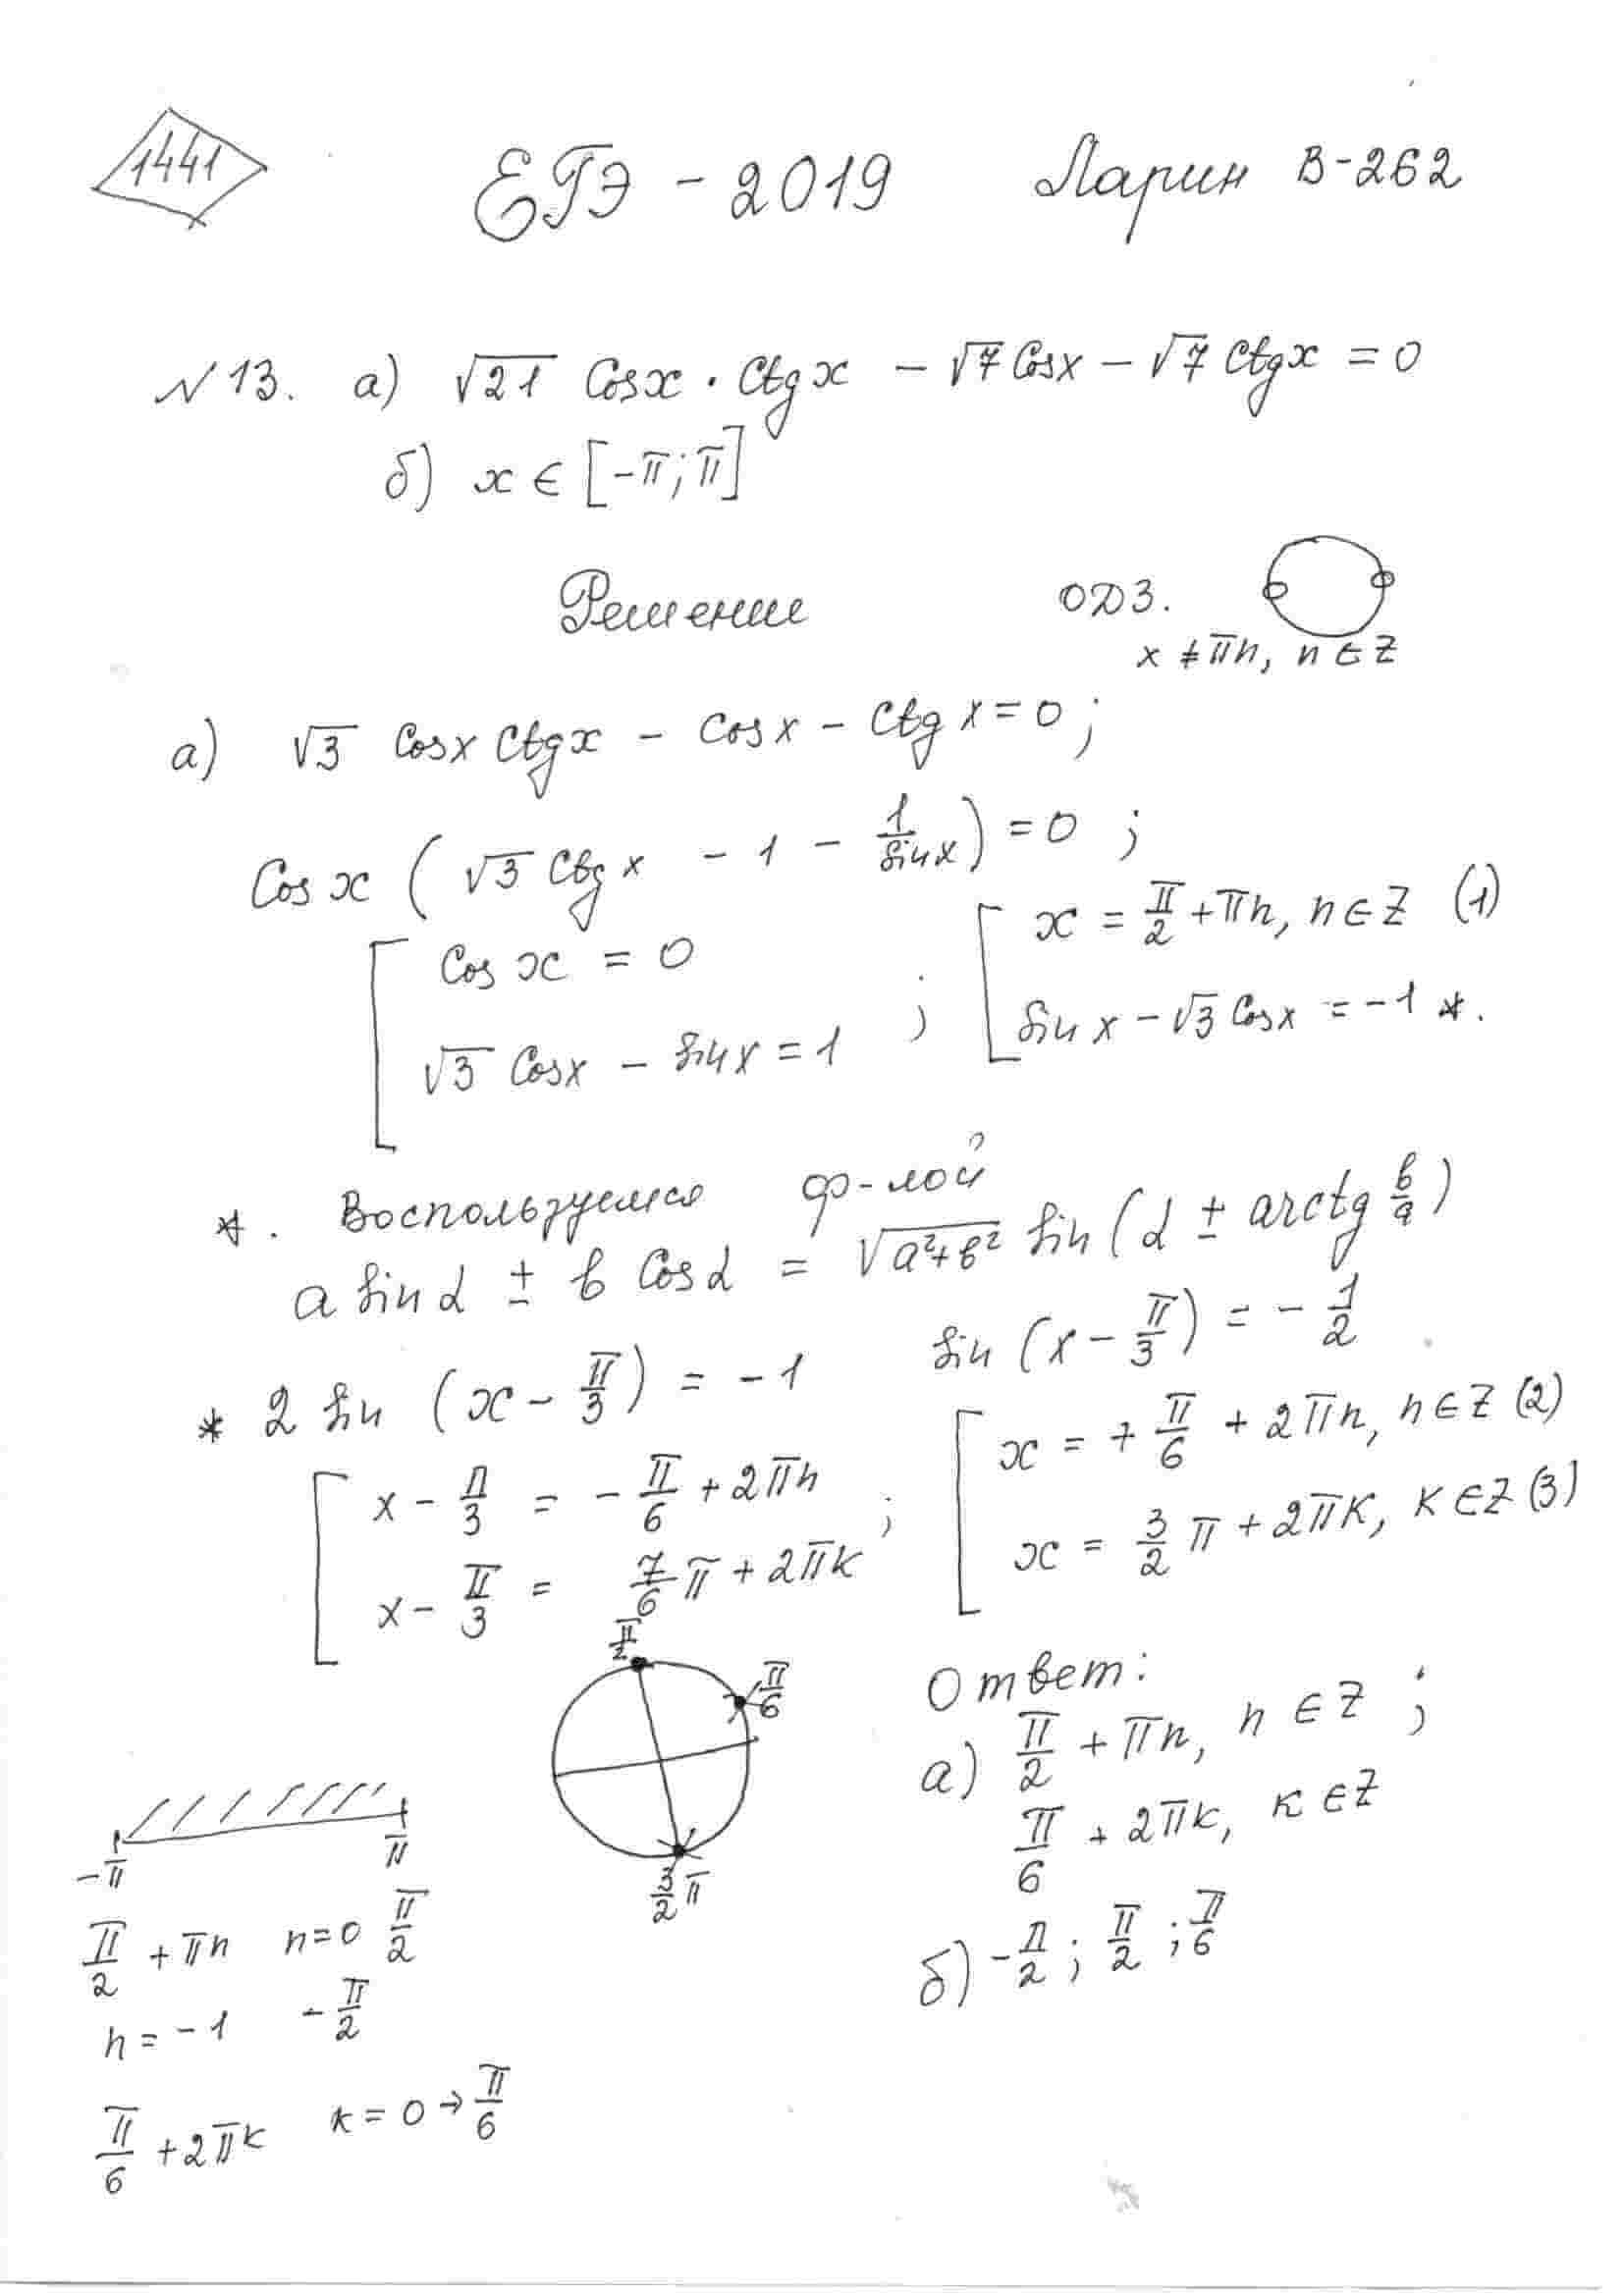 1441
ЕГЭ - 2019 Ларин В-262
N 13. а) √21 Cosx · Ctgx - √7 Cosx - √7 Ctgx = 0
б) x ∈ [-π; π]
Решение ОДЗ.
x ≠ πn, n ∈ Z
а) √3 Cosx Ctgx - Cosx - Ctgx = 0 ;
Cosx (√3 Ctgx - 1 - 1/sinx) = 0 ;
[ Cosx = 0 ; [ x = π/2 + πn, n ∈ Z (1)
√3 Cosx - sinx = 1 sinx - √3 Cosx = -1 *.
*. Воспользуемся ф-лой
a sinα ± b Cosα = √(a²+b²) sin(α ± arctg b/a)
* 2 sin (x - π/3) = -1 sin (x - π/3) = - 1/2
[ x - π/3 = - π/6 + 2πn ; [ x = + π/6 + 2πn, n ∈ Z (2)
x - π/3 = 7/6 π + 2πk x = 3/2 π + 2πk, k ∈ Z (3)
π/2
π/6
3/2 π
-π π
π/2 + πn n=0 π/2
n = -1 - π/2
π/6 + 2πk k = 0 → π/6
Ответ:
а) π/2 + πn, n ∈ Z ;
π/6 + 2πk, k ∈ Z
б) - π/2 ; π/2 ; π/6